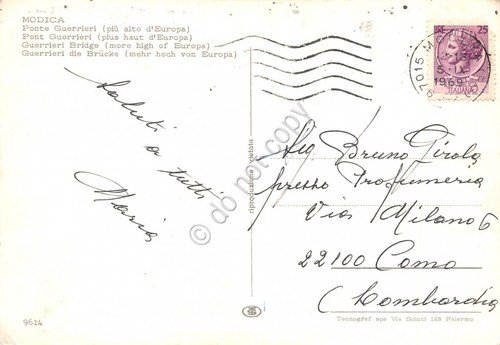 MODICA
Ponte Guerrieri (più alto d'Europa)
Pont Guerrieri (plus haut d'Europa)
Guerrieri Bridge (more high of Europa)
Guerrieri die Brücke (mehr hoch von Europa)
Saluti
a tutti
Maria
9614
riproduzione vietata
do not copy
25
ITALIANE
97015 M
1969
Sig Bruno Girola
presso Profumeria
Via Milano 6
22100 Como
(Lombardia
Tecnograf spa Via Sciuti 128 Palermo